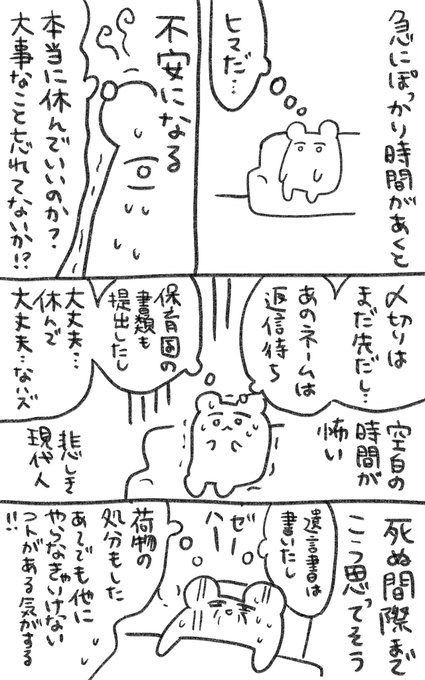 急にぽっかり時間があくと
ヒマだ…
不安になる
本当に休んでいいのか?
大事なこと忘れてないか!?
〆切りは
まだ先だし…
あのネームは
返信待ち
保育園の
書類も
提出したし
大丈夫…
休んで
大丈夫…なハズ
空白の
時間が
怖い
悲しき
現代人
死ぬ間際まで
こう思ってそう
遺言書は
書いたし
ゼー
ハー
荷物の
処分もした
あーでも他に
やらなきゃいけない
コトがある気がする
!!